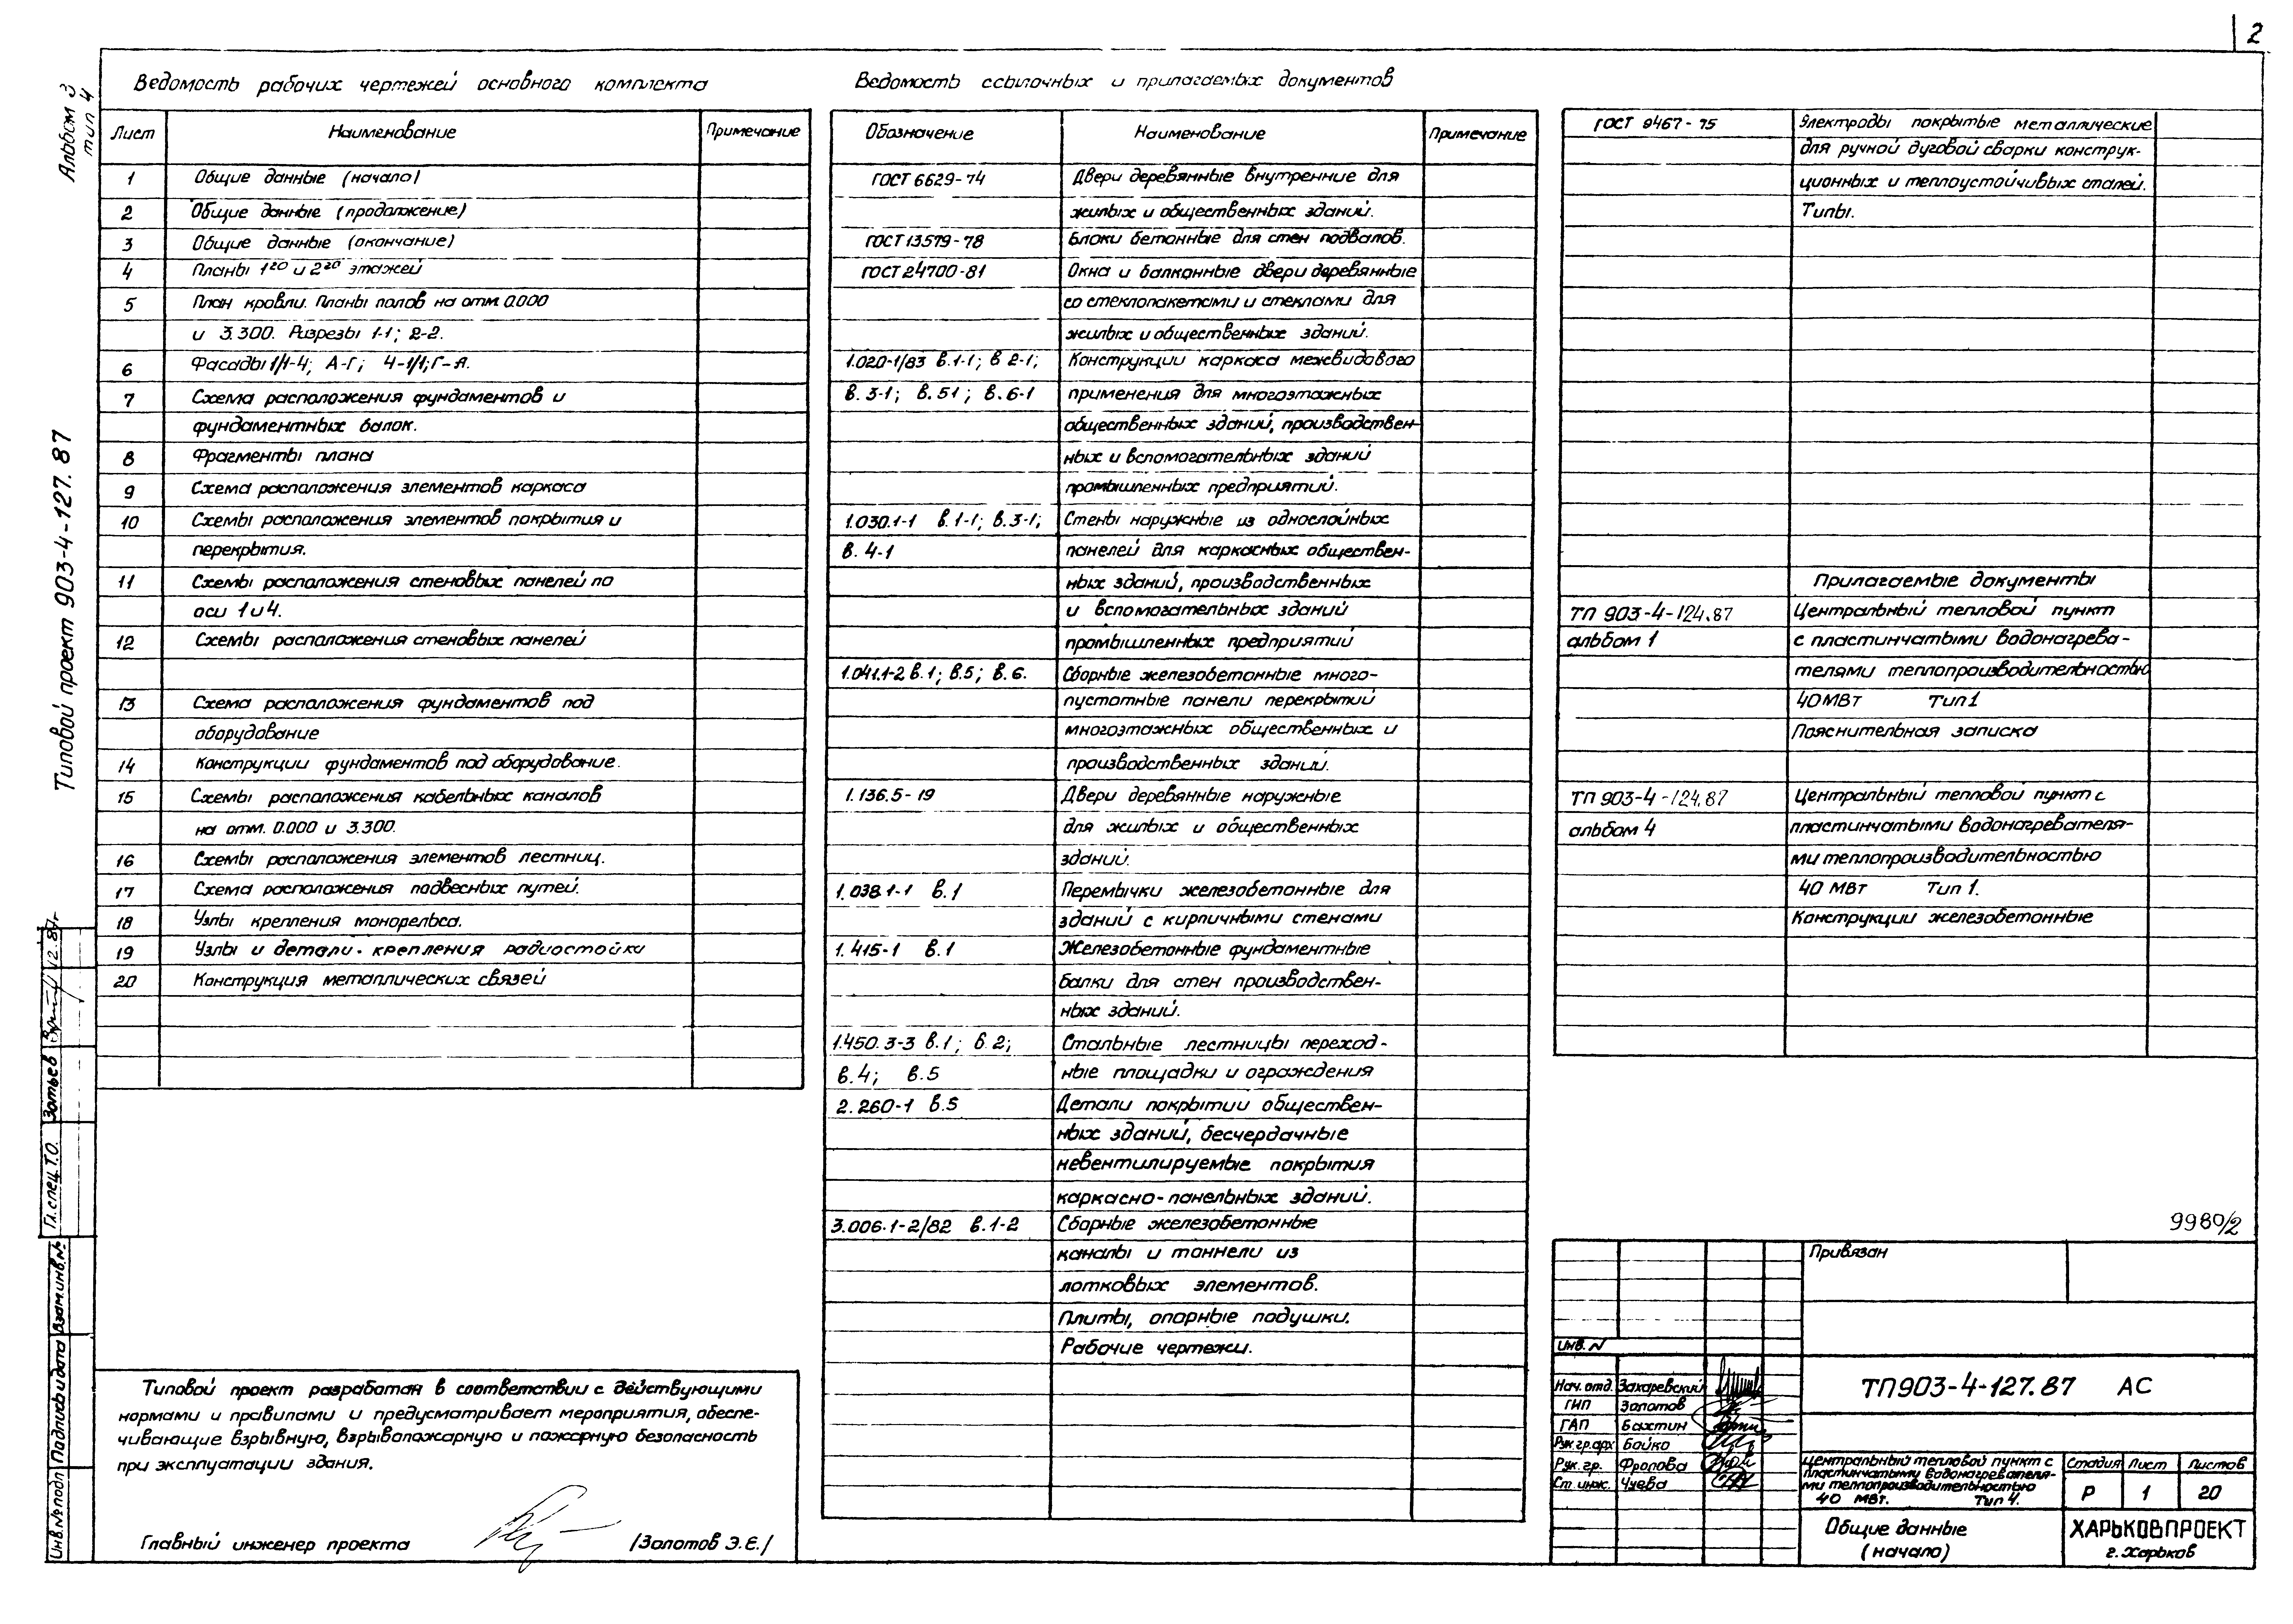 2
Альбом 3
тип 4
Типовой проект 903-4-127.87
Ведомость рабочих чертежей основного комплекта
Лист Наименование Примечание
1 Общие данные (начало)
2 Общие данные (продолжение)
3 Общие данные (окончание)
4 Планы 1го и 2го этажей
5 План кровли. Планы полов на отм. 0.000
и 3.300. Разрезы 1-1; 2-2.
6 Фасады 1/1-4; А-Г; 4-1/1; Г-А.
7 Схема расположения фундаментов и
фундаментных балок.
8 Фрагменты плана
9 Схема расположения элементов каркаса
10 Схемы расположения элементов покрытия и
перекрытия.
11 Схемы расположения стеновых панелей по
оси 1 и 4.
12 Схемы расположения стеновых панелей
13 Схема расположения фундаментов под
оборудование
14 Конструкции фундаментов под оборудование.
15 Схемы расположения кабельных каналов
на отм. 0.000 и 3.300.
16 Схемы расположения элементов лестниц.
17 Схема расположения подвесных путей.
18 Узлы крепления монорельса.
19 Узлы и детали крепления радиостойки
20 Конструкция металлических связей
Типовой проект разработан в соответствии с действующими
нормами и правилами и предусматривает мероприятия, обеспе-
чивающие взрывную, взрывопожарную и пожарную безопасность
при эксплуатации здания.
Главный инженер проекта /Золотов Э.Е./
Ведомость ссылочных и прилагаемых документов
Обозначение Наименование Примечание
ГОСТ 6629-74 Двери деревянные внутренние для
жилых и общественных зданий.
ГОСТ 13579-78 Блоки бетонные для стен подвалов.
ГОСТ 24700-81 Окна и балконные двери деревянные
со стеклопакетами и стеклами для
жилых и общественных зданий.
1.020-1/83 в.1-1; в 2-1; Конструкции каркаса межвидового
в. 3-1; в. 51; в. 6-1 применения для многоэтажных
общественных зданий, производствен-
ных и вспомогательных зданий
промышленных предприятий.
1.030.1-1 в.1-1; в.3-1; Стены наружные из однослойных
в. 4-1 панелей для каркасных обществен-
ных зданий, производственных
и вспомогательных зданий
промышленных предприятий
1.041.1-2 в.1; в.5; в. 6. Сборные железобетонные много-
пустотные панели перекрытий
многоэтажных общественных и
производственных зданий.
1.136.5-19 Двери деревянные наружные
для жилых и общественных
зданий.
1.038.1-1 в.1 Перемычки железобетонные для
зданий с кирпичными стенами
1.415-1 в.1 Железобетонные фундаментные
балки для стен производствен-
ных зданий.
1.450.3-3 в.1; в.2; Стальные лестницы переход-
в.4; в.5 ные площадки и ограждения
2.260-1 в.5 Детали покрытии обществен-
ных зданий, бесчердачные
невентилируемые покрытия
каркасно-панельных зданий.
3.006.1-2/82 в.1-2 Сборные железобетонные
каналы и тоннели из
лотковых элементов.
Плиты, опорные подушки.
Рабочие чертежи.
ГОСТ 9467-75 Электроды покрытые металлические
для ручной дуговой сварки конструк-
ционных и теплоустойчивых сталей.
Типы.
Прилагаемые документы
ТП 903-4-124.87 Центральный тепловой пункт
альбом 1 с пластинчатыми водонагрева-
телями теплопроизводительностью
40 МВт Тип 1
Пояснительная записка
ТП 903-4-124.87 Центральный тепловой пункт с
альбом 4 пластинчатыми водонагревателя-
ми теплопроизводительностью
40 МВт Тип 1.
Конструкции железобетонные
9980/2
Привязан
Инв. N
Нач. отд. Захаревский
ГИП Золотов
ГАП Бахтин
Рук.гр.арх Бойко
Рук. гр. Фролова
Ст. инж. Чуева
ТП903-4-127.87 АС
Центральный тепловой пункт с
пластинчатыми водонагревателя-
ми теплопроизводительностью
40 МВт. Тип 4.
Стадия Лист Листов
Р 1 20
Общие данные
(начало)
ХАРЬКОВПРОЕКТ
г. Харьков
Гл. спец Т.О. Зотьев
Инв.№подл Подпись и дата Взам.инв.№